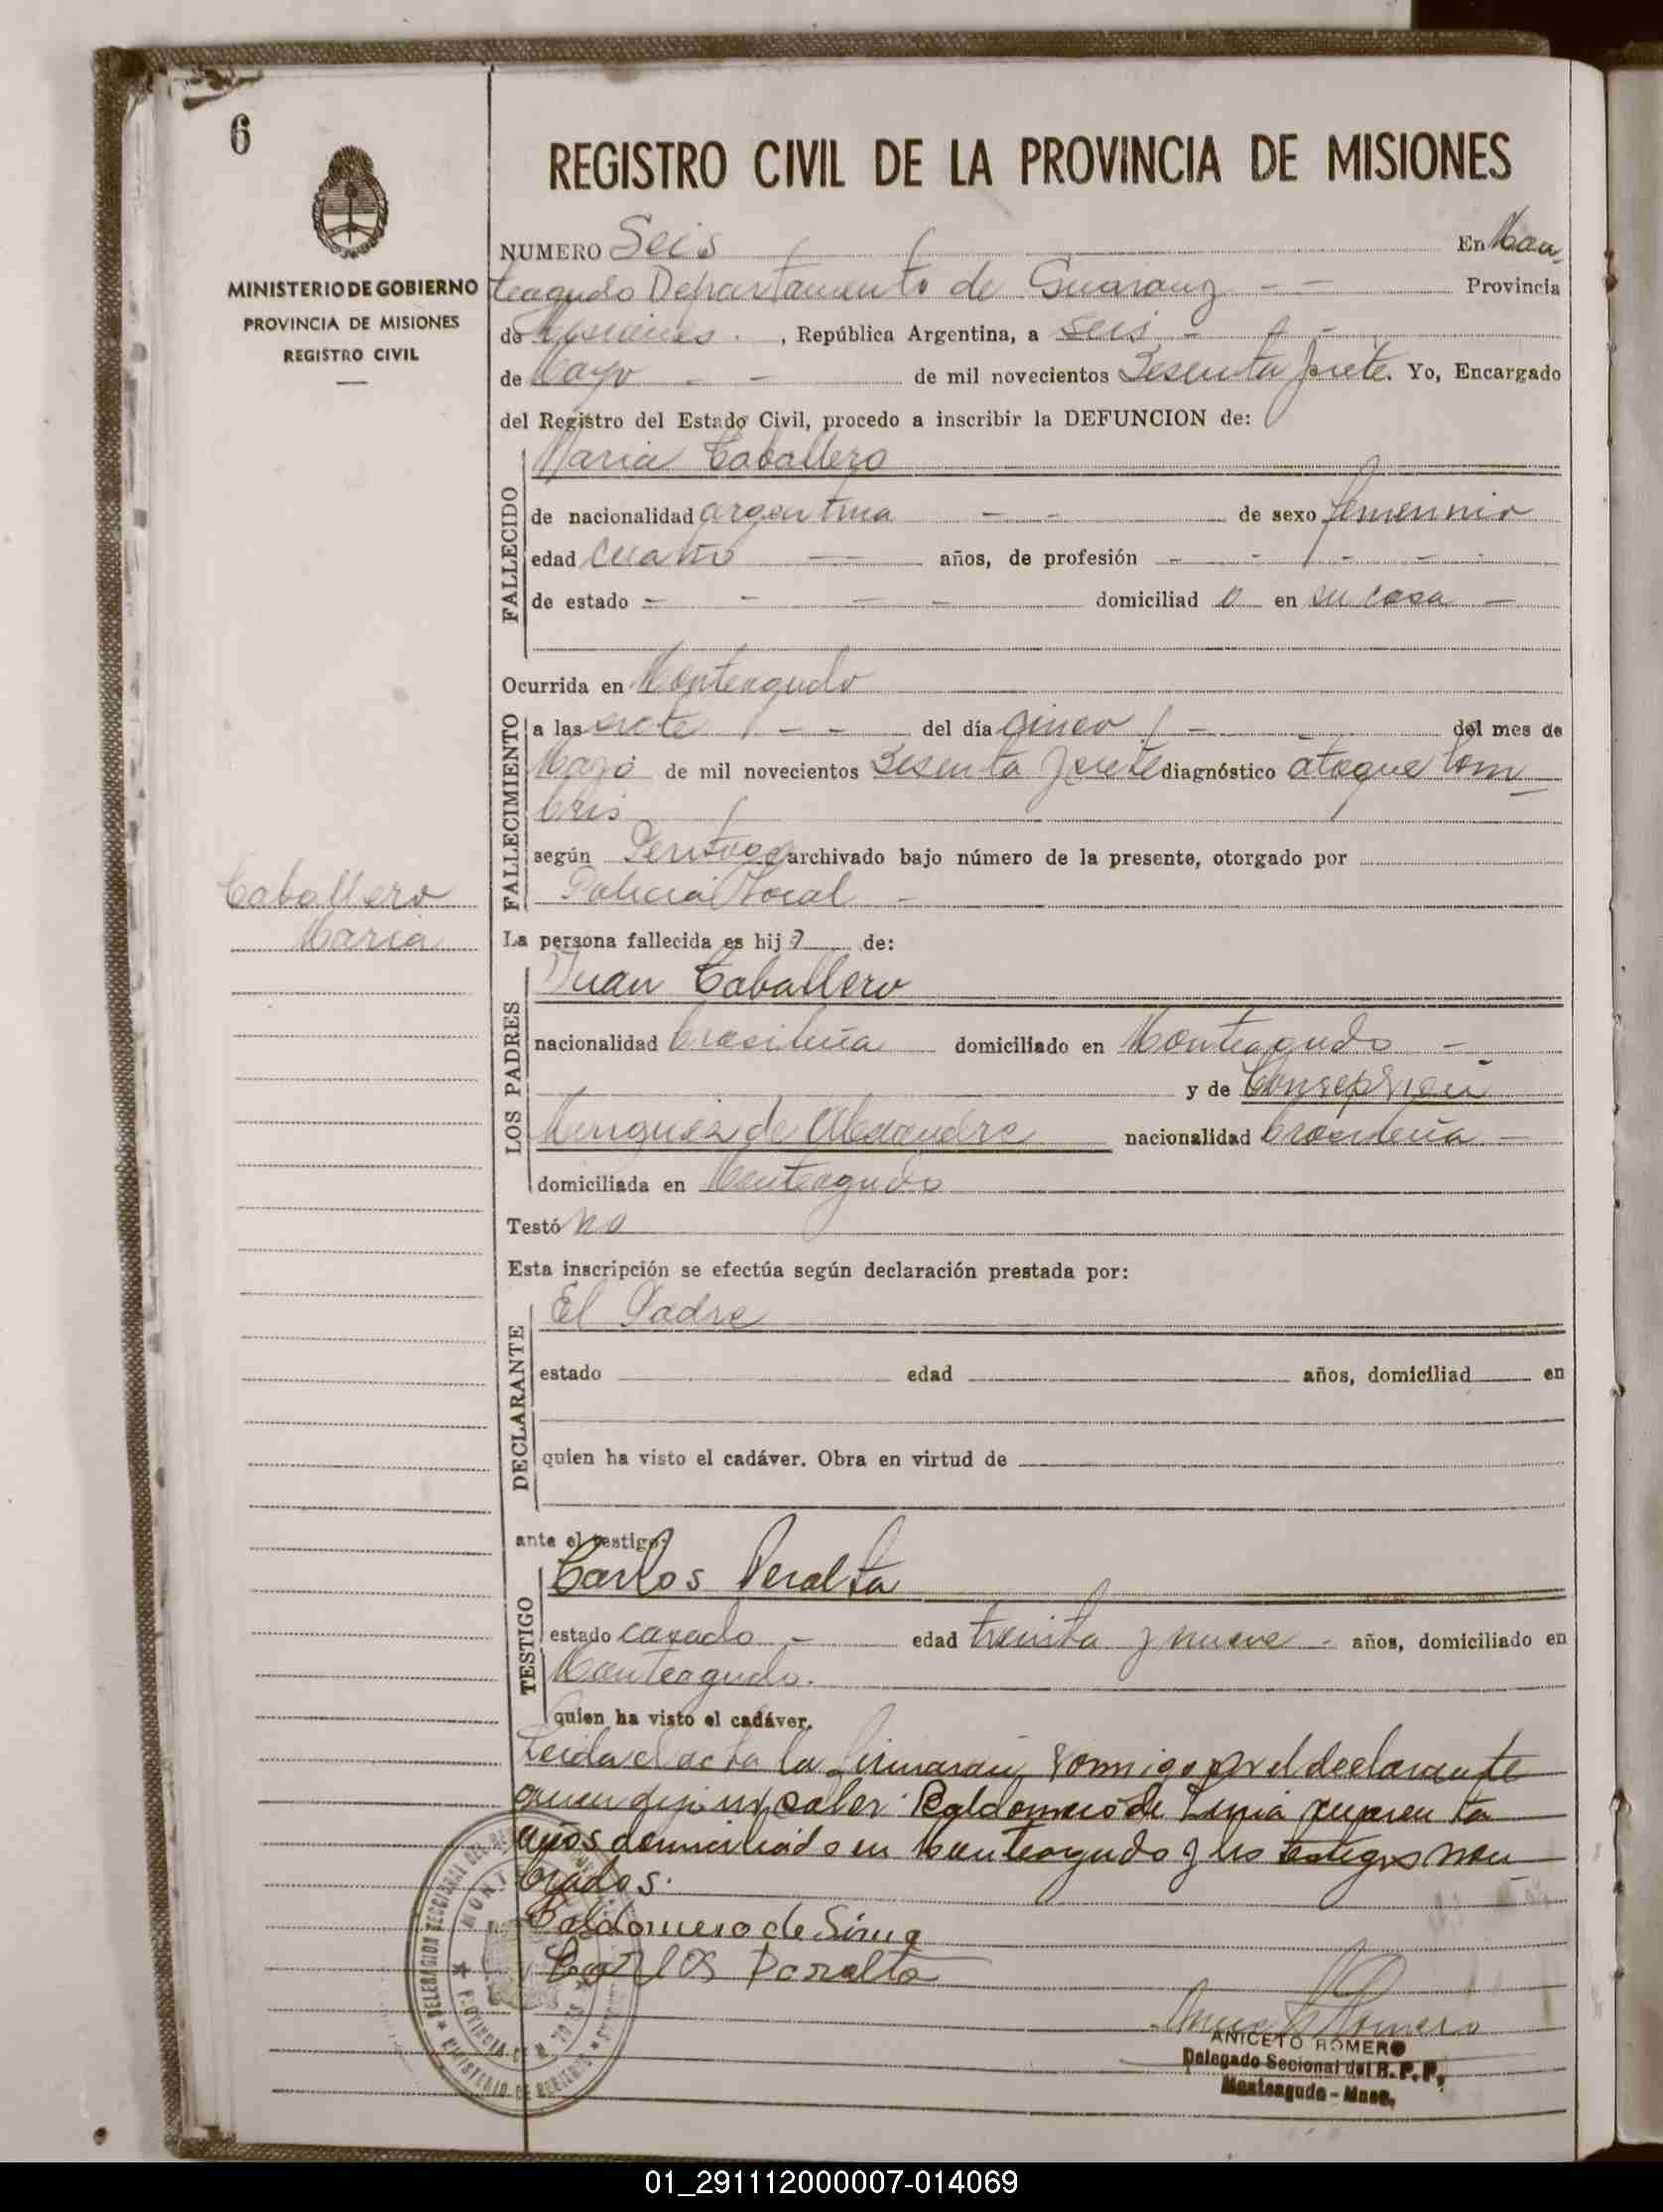 6
MINISTERIO DE GOBIERNO
PROVINCIA DE MISIONES
REGISTRO CIVIL
REGISTRO CIVIL DE LA PROVINCIA DE MISIONES
NUMERO Seis En Mon
teagudo Departamento de Guarany Provincia
de Misiones. , República Argentina, a seis
de Mayo de mil novecientos Sesenta y siete. Yo, Encargado
del Registro del Estado Civil, procedo a inscribir la DEFUNCION de:
FALLECIDO
Maria Caballero
de nacionalidad argentina de sexo femenino
edad cuatro años, de profesión
de estado domiciliad o en su casa
Ocurrida en Monteagudo
FALLECIMIENTO
a las siete del día cinco del mes de
Mayo de mil novecientos Sesenta y siete diagnóstico ataque lom
bris
según archivado bajo número de la presente, otorgado por
Policia Local
Caballero
Maria
La persona fallecida es hij a de:
LOS PADRES
Juan Caballero
nacionalidad brasileña domiciliado en Monteagudo
y de Consepsion
de nacionalidad brasileña
domiciliada en Monteagudo
Testó no
Esta inscripción se efectúa según declaración prestada por:
DECLARANTE
El Padre
estado edad años, domiciliad en
quien ha visto el cadáver. Obra en virtud de
ante el testigo:
TESTIGO
Carlos Peralta
estado casado edad treinta y nueve años, domiciliado en
Monteagudo.
quien ha visto el cadáver.
Leida el acta la firmaran conmigo por el declarante
quien dijo no saber Baldomero de Lima
años domiciliado en Monteagudo y los testigos nom
brados.
Baldomero de Lima
Carlos Peralta
ANICETO ROMERO
Delegado Secional del R. P. P.
Monteagudo - Mnes.
01_291112000007-014069